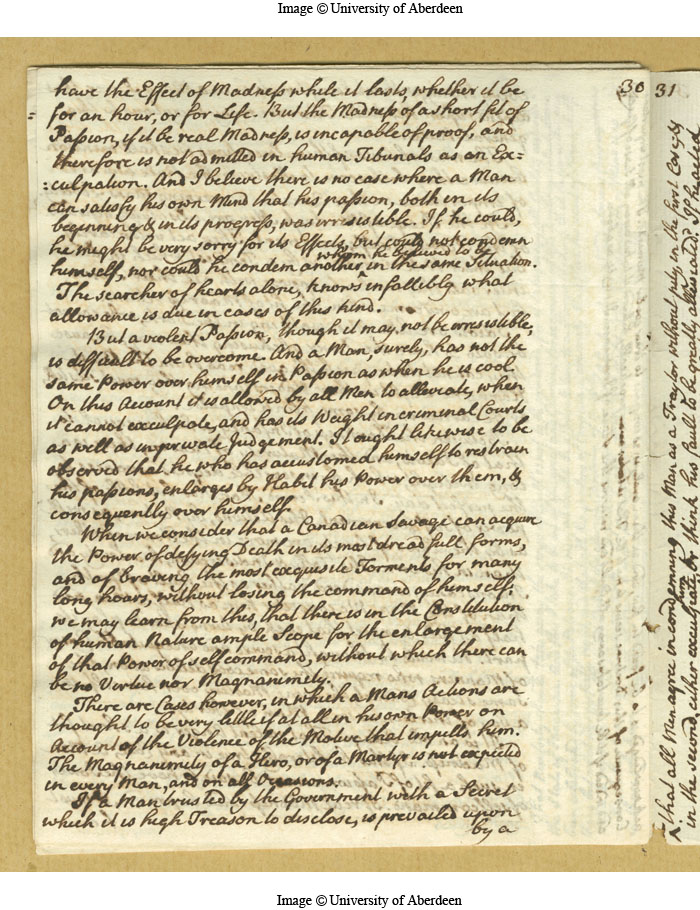 Image © University of Aberdeen
30
31
have the Effect of Madness while it lasts, whether it be
for an hour, or for Life. But the Madness of a short fit of
Passion, if it be real Madness, is incapable of proof, and
therefore is not admitted in human Tibunals as an Ex=
=culpation. And I believe there is no case where a Man
can satisfy his own Mind that his passion, both in its
beginning & in its progress, was irresistible. If he could,
he might be very sorry for its Effects, but could not condemn
whom he believed to be
himself, nor could he condem another, ^ in the same Situation.
The searcher of hearts alone, knows infallibly what
allowance is due in cases of this kind.
But a violent Passion, though it may not be irresistible,
is difficult to be overcome. And a Man, surely, has not the
same Power over himself in Passion as when he is cool.
On this Account it is allowed by all Men to alleviate, when
it cannot exculpate, and has its Weight in criminal Courts
as well as in private Judgement. It ought likewise to be
observed that he who has accustomed himself to restrain
his passions, enlarges by Habit his Power over them, &
consequently over himself.
When we consider that a Canadian Savage can acquire
the Power of defying Death in its most dreadfull forms,
and of braving the most exquisite Torments for many
long hours, without losing the command of himself.
we may learn from this, that there is in the Constitution
of human Nature ample Scope for the enlargement
of that Power of self command, without which there can
be no Virtue nor Magnanimity.
There are Cases however, in which a Mans Actions are
thought to be very little if at all in his own Power on
Account of the Violence of the Motive that impells him.
The Magnanimity of a Hero, or of a Martyr is not expected
in every Man, and on all Occasions.
If a Man trusted by the Government with a Secret
which it is high Treason to disclose, is prevailed upon
by a
^ that all Men agree in condemning this Man as a Traytor without pity, in the first Case, &
in the second, either exculpate him or think his fault to be greatly alleviated?
Image © University of Aberdeen